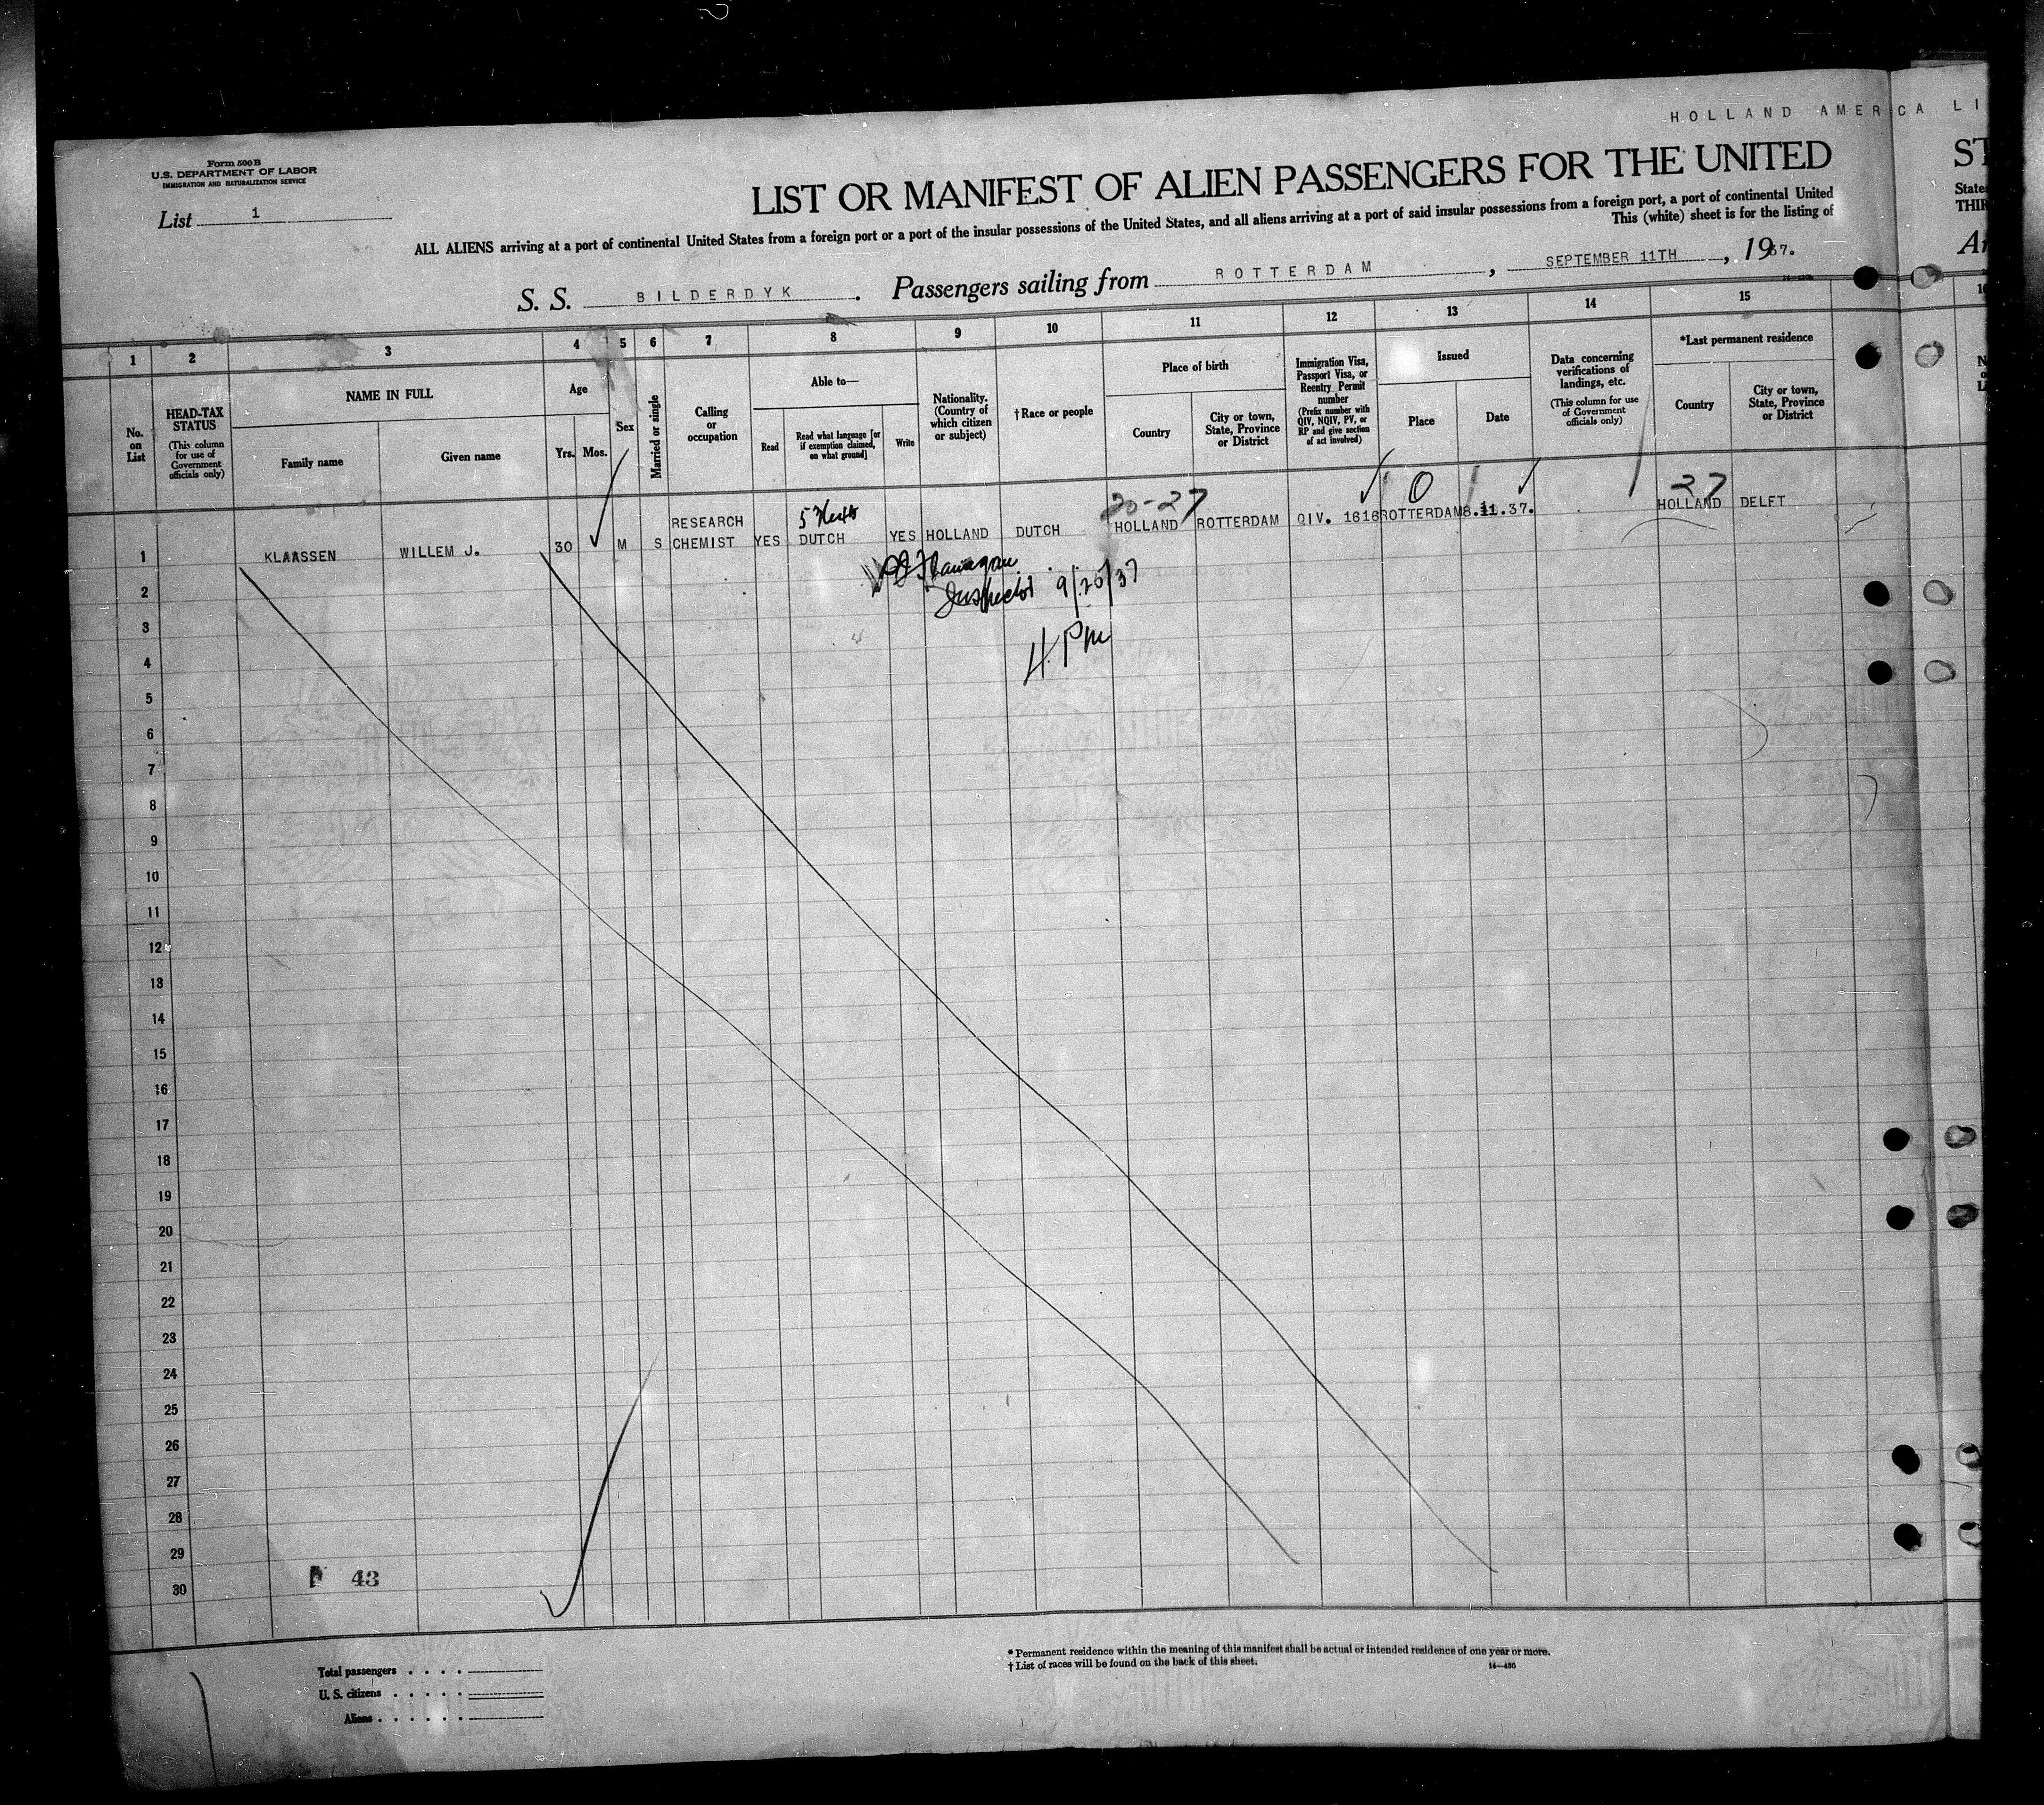 HOLLAND AMERICA LI
Form 500 B
U.S. DEPARTMENT OF LABOR
IMMIGRATION AND NATURALIZATION SERVICE
List 1
LIST OR MANIFEST OF ALIEN PASSENGERS FOR THE UNITED ST
ALL ALIENS arriving at a port of continental United States from a foreign port or a port of the insular possessions of the United States, and all aliens arriving at a port of said insular possessions from a foreign port, a port of continental United State
This (white) sheet is for the listing of THIR
S. S. BILDERDYK. Passengers sailing from ROTTERDAM, SEPTEMBER 11TH, 1937. Ar
1 2 3 4 5 6 7 8 9 10 11 12 13 14 15 16
No. on List
HEAD-TAX STATUS
(This column for use of Government officials only)
NAME IN FULL
Family name
Given name
Age
Yrs. Mos.
Sex
Married or single
Calling or occupation
Able to—
Read
Read what language [or if exemption claimed, on what ground]
Write
Nationality. (Country of which citizen or subject)
†Race or people
Place of birth
Country
City or town, State, Province or District
Immigration Visa, Passport Visa, or Reentry Permit number
(Prefix number with QIV, NQIV, PV, or RP and give section of act involved)
Issued
Place
Date
Data concerning verifications of landings, etc.
(This column for use of Government officials only)
*Last permanent residence
Country
City or town, State, Province or District
20-27 0 27
1 KLAASSEN WILLEM J. 30 M S RESEARCH CHEMIST YES DUTCH YES HOLLAND DUTCH HOLLAND ROTTERDAM QIV. 1616 ROTTERDAM 8.11.37. HOLLAND DELFT
Inspector 9/20/37
4 PM
2
3
4
5
6
7
8
9
10
11
12
13
14
15
16
17
18
19
20
21
22
23
24
25
26
27
28
29
30
43
Total passengers . . . .
U. S. citizens . . . . .
Aliens . . . . . .
* Permanent residence within the meaning of this manifest shall be actual or intended residence of one year or more.
† List of races will be found on the back of this sheet.
14—430